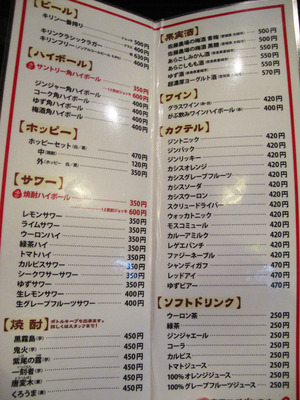 【ビール】
キリン一番搾り 500円
キリンクラシックラガー
キリンフリー 400円
【ハイボール】
サントリー角ハイボール 350円
600円
ジンジャー角ハイボール 400円
コーク角ハイボール 400円
ゆず角ハイボール 400円
梅酒角ハイボール 400円
【ホッピー】
ホッピーセット 470円
中 350円
外 120円
【サワー】
焼酎ハイボール 350円
600円
レモンサワー 350円
ライムサワー 350円
ウーロンハイ 350円
緑茶ハイ 350円
トマトハイ 350円
カルピスサワー 350円
シークワサーサワー 350円
ゆずサワー 350円
生レモンサワー 400円
生グレープフルーツサワー 400円
【焼酎】
黒霧島 450円
鬼火 450円
紫尾の露 450円
一刻者 450円
唐変木 450円
くろうま 450円
【果実酒】
佐藤農場の梅酒 550円
佐藤農場の梅酒 550円
あらごしみかん酒 500円
あらごしもも酒 500円
ゆず酒 500円
超濃厚ヨーグルト酒 500円
【ワイン】
グラスワイン 400円
がぶ飲みワインハイボール 400円
【カクテル】
ジントニック 420円
ジンバック 420円
ジンリッキー 420円
カシスオレンジ 420円
カシスグレープフルーツ 420円
カシスソーダ 420円
カシスウーロン 420円
スクリュードライバー 420円
ウォッカトニック 420円
モスコミュール 420円
カルーアミルク 420円
レゲエパンチ 420円
ファジーネーブル 420円
シャンディガフ 470円
レッドアイ 470円
ゆずビアー 470円
【ソフトドリンク】
ウーロン茶 250円
緑茶 250円
ジンジャエール 250円
コーラ 250円
カルピス 250円
トマトジュース 250円
100%オレンジジュース 250円
100%グレープフルーツジュース 250円